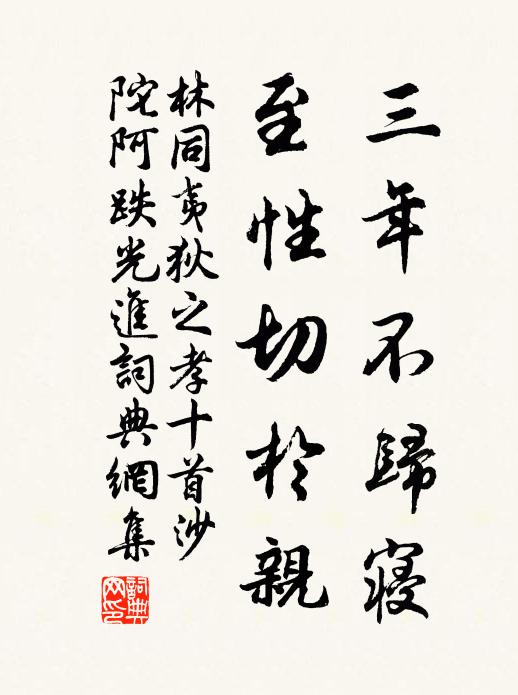 三年不歸寢
至性切於親
林同夷狄之孝十首沙
陀阿跌光進詞典網集
詞典網印